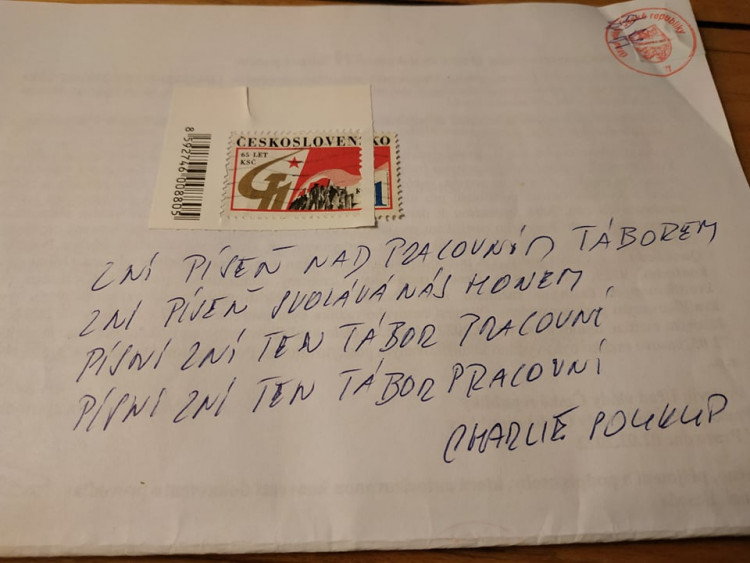 republiky
7
8592746008805
ČESKOSLOVENSKO
65 LET
KSČ
1
ZNÍ PÍSEŇ NAD PRACOVNÍM TÁBOREM
ZNÍ PÍSEŇ SVOLÁVÁ NÁS HONEM
PÍSNÍ ZNÍ TEN TÁBOR PRACOVNÍ
PÍSNÍ ZNÍ TEN TÁBOR PRACOVNÍ
CHARLIE SOUKUP